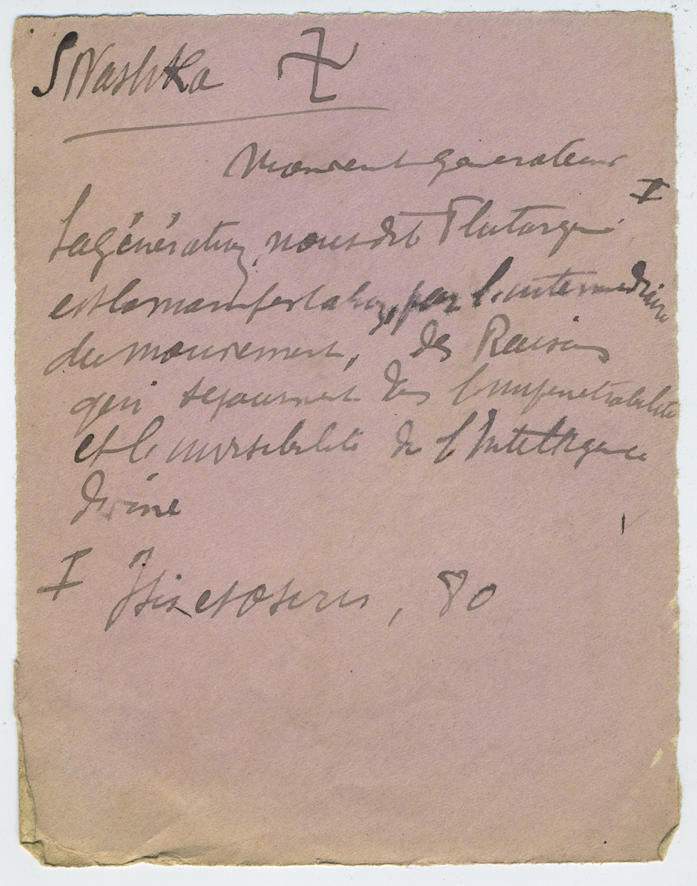 Swastika 卐
Mouvement générateur
La génération, nous dit Plutarque I
est la manifestation, par l'intermédiaire
du mouvement, des Raisons
qui séjournent ds l'impénétrabilité
et l'invisibilité de l'Intelligence
divine
I Isis et Osiris, 80